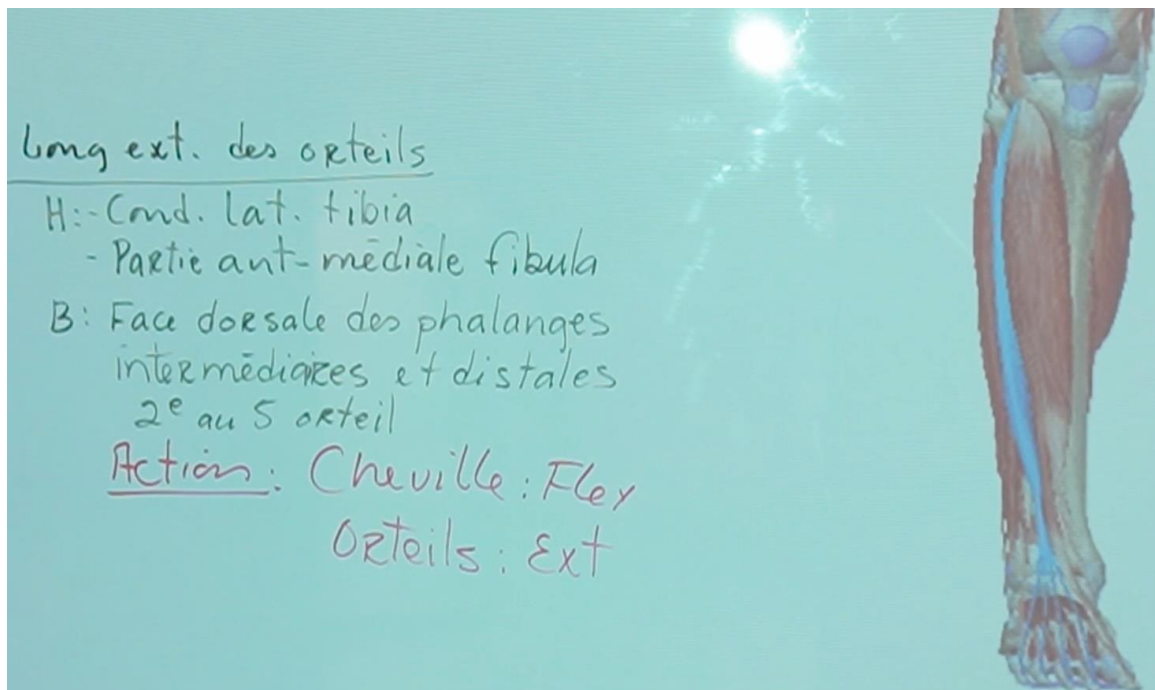 Long ext. des orteils
H:- Cond. lat. tibia
- Partie ant-médiale fibula
B: Face dorsale des phalanges
intermédiaires et distales
2e au 5 orteil
Action: Cheville: Flex
Orteils: Ext